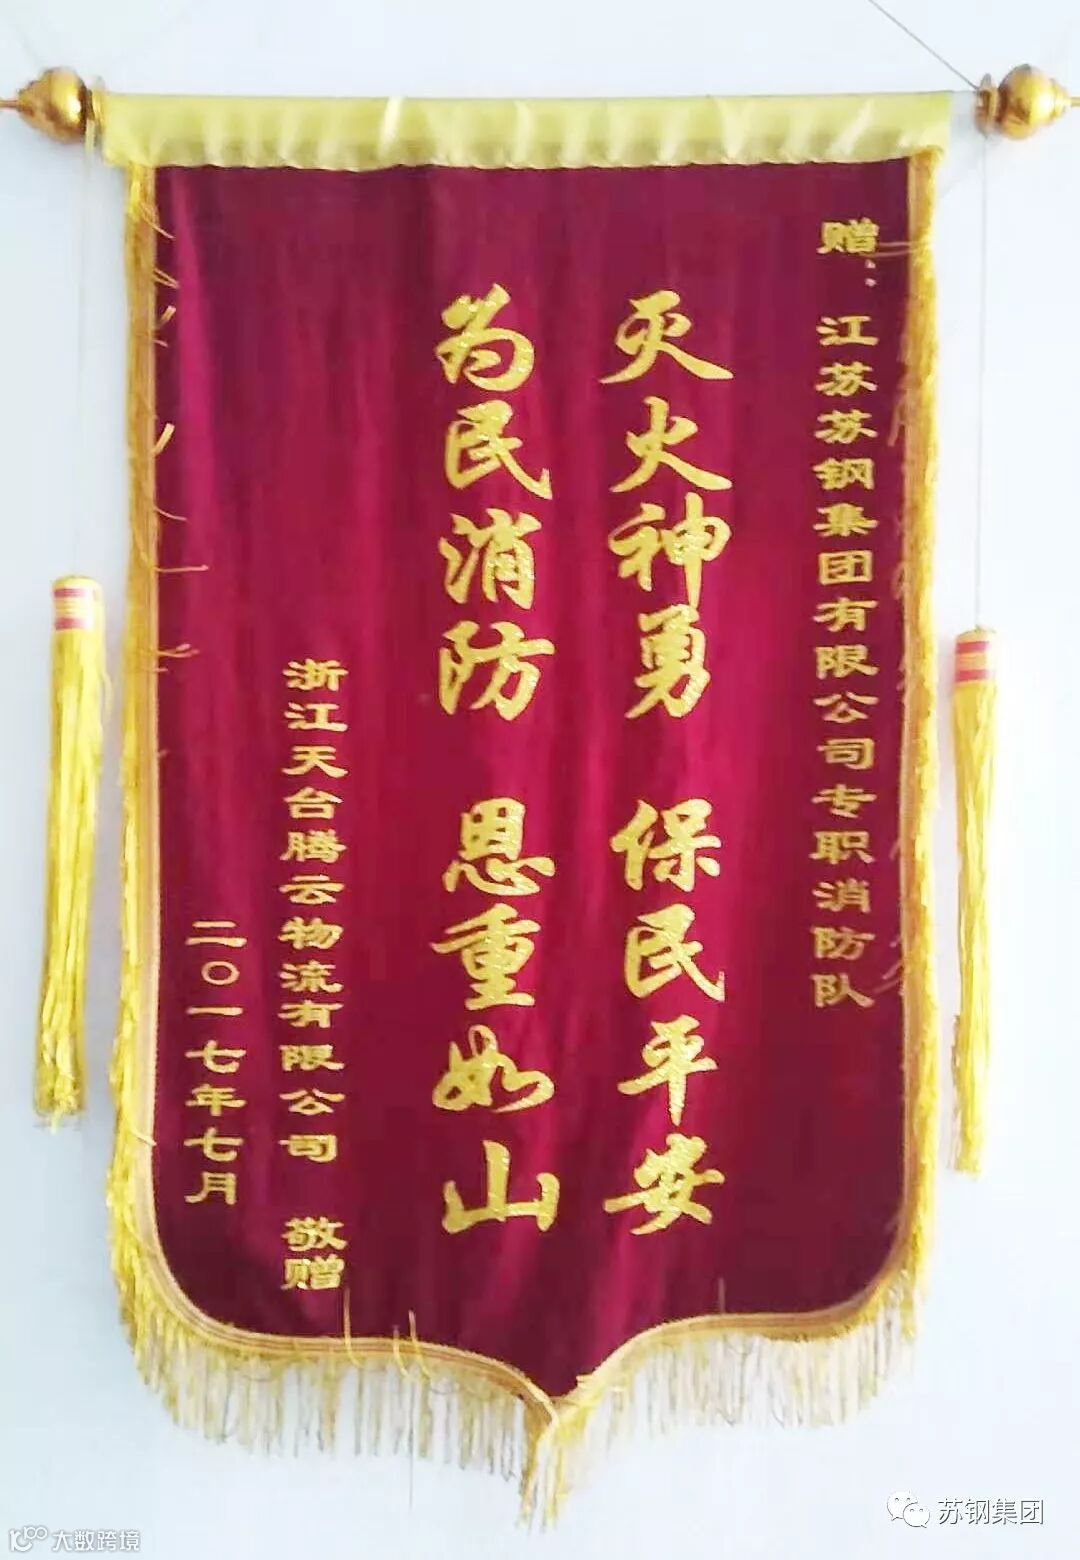 赠：江苏苏钢集团有限公司专职消防队
灭火神勇 保民平安
为民消防 恩重如山
浙江天台腾云物流有限公司 敬赠
二〇一七年七月
苏钢集团
大数跨境